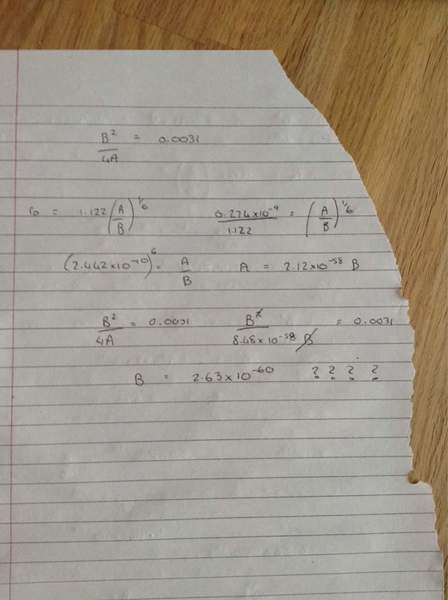 B²/4A = 0.0031
r₀ = 1.122 (A/B)^1/6    0.274×10⁻⁹/1.122 = (A/B)^1/6
(2.442×10⁻¹⁰)⁶ = A/B    A = 2.12×10⁻⁵⁸ B
B²/4A = 0.0031    B²/8.48×10⁻⁵⁸ B = 0.0031
B = 2.63×10⁻⁶⁰    ? ? ? ?